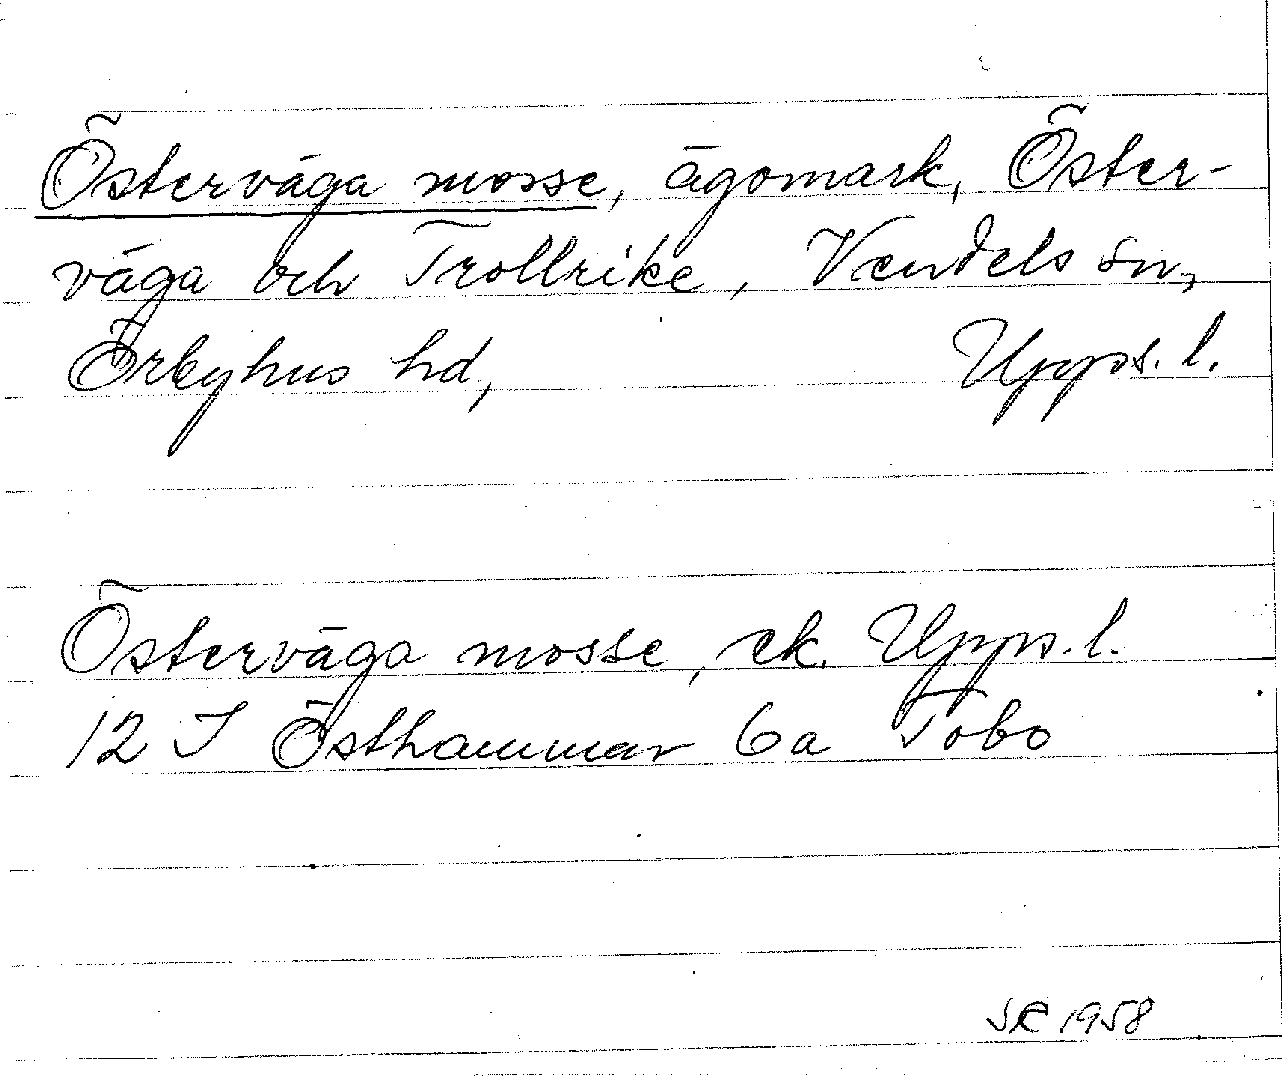 Österväga mosse, ägomark, Öster-
väga och Trollrike, Vendels sn,
Örbyhus hd, Upps. l.
Österväga mosse, ek. Upps. l.
12 I Östhammar 6a Tobo
1958